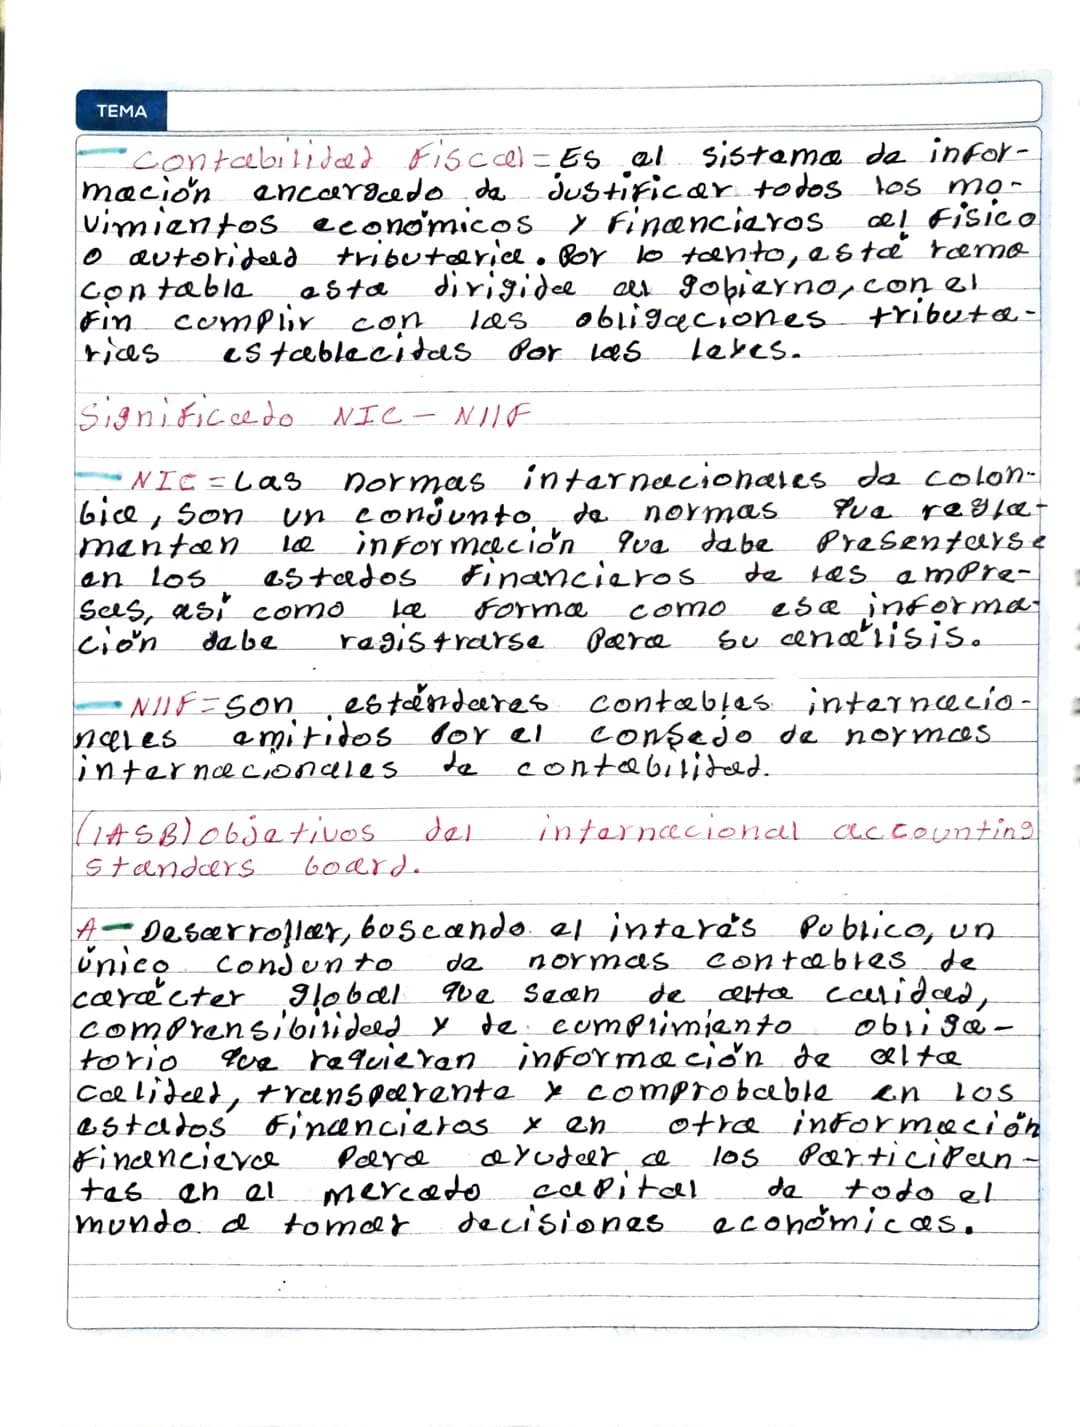 TEMA
Contabilidad Fiscal = Es el sistema de infor-
mación encargado de justificar todos los mo-
vimientos económicos y financieros al físico
o autoridad tributaria. Por lo tanto, está rama
contable esta dirigida al gobierno, con el
fin cumplir con las obligaciones tributa-
rias establecidas por las leyes.
Significado NIC - NIIF
- NIC = Las normas internacionales de colon-
bia, son un conjunto de normas que regla-
mentan la información que debe presentarse
en los estados financieros de las empre-
sas, así como la forma como esa informa-
ción debe registrarse para su análisis.
- NIIF = Son estándares contables internacio-
nales emitidos por el consejo de normas
internacionales de contabilidad.
(IASB) objetivos del internacional accounting
standars board.
A- Desarrollar, buscando el interés publico, un
único conjunto de normas contables de
carácter global que sean de alta calidad,
comprensibilidad y de cumplimiento obliga-
torio que requieran información de alta
calidad, transparente y comprobable en los
estados financieros y en otra información
financiera para ayudar a los participan-
tes en el mercado capital de todo el
mundo a tomar decisiones económicas.